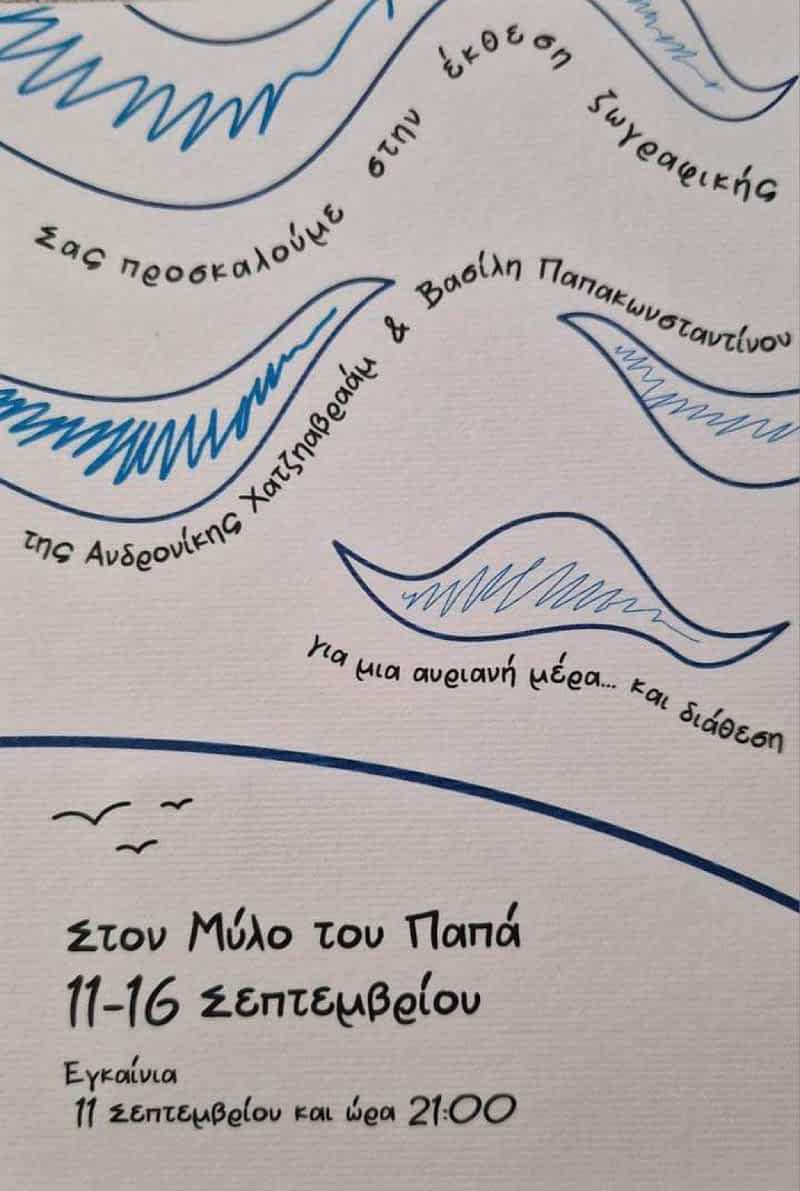 Σας προσκαλούμε στην έκθεση ζωγραφικής
της Ανδρονίκης Χατζηαβραάμ & Βασίλη Παπακωνσταντίνου
για μια αυριανή μέρα... και διάθεση
Στον Μύλο του Παπά
11-16 Σεπτεμβρίου
Εγκαίνια
11 Σεπτεμβρίου και ώρα 21:00